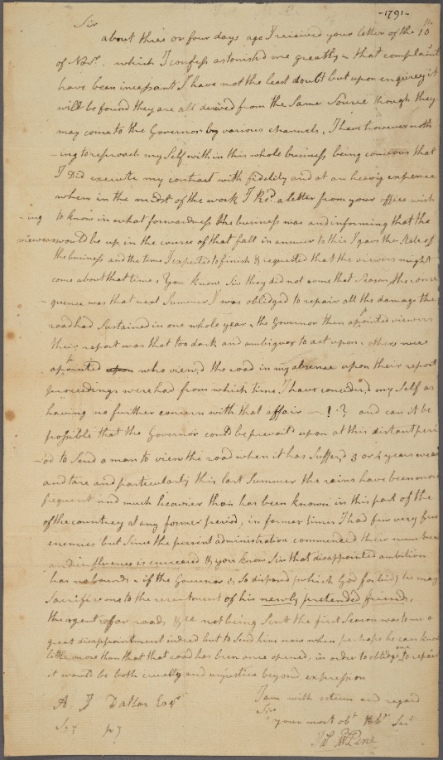 -1791-
Sir
about three or four days ago I received your letter of the 10th
of Novr. which I confess astonished me greatly - that complaints
have been incessant I have not the least doubt but upon enquirey it
will be found they are all derived from the Same Source though they
may come to the Governor by various channels, I have however noth
-ing to reproach my Self with in this whole business being concious that
I Did execute my contract with fidelity and at an heavy expence
when in the midst of the work I Recd. a letter from your office wish
-ing to know in what forwardness the business was and informing that the
viewers would be up in the course of that fall in answer to this I gave the State of
the business and the time I expected to finish & requested that the viewers might
come about that time, You know Sir they did not come that Season the conse
quence was that next Summer I was obliged to repair all the damage the
road had Sustained in one whole year & the Governor then appointed viewers
their report was that too dark and ambiguos to act upon, others were
appointed who viewed the road in my absence upon their report
proceedings were had from which time I have considered my Self as
having no further concern with that affair - ! ? and can it be
possible that the Governor could be prevaild upon at this distant peri
od to Send a man to view the road when it has Suffer'd 3 or 4 years wear
and tare and particularly this last Summer the rains have been more
frequent and much heavier than has been known in this part of the
of the countrey at any former period, in former times I had few very few
enemies but Since the present administration commenced their number
and influence is encreased & you know Sir that disappointed ambition
has no bounds & if the Governor is So disposed (which God forbid) he may
Sacrifice one to the resentment of his newly pretended friend,
the agent of road, &c not being Sent the first Season was to me a
great disappointment indeed but to Send him now when perhaps he can know
little more than that that road has been once opened, in order to oblidge me to repair
it would be both cruelty and injustice beyond expression
I am with esteem and regard
A J Dallas Esqr
Sir
your most obt. Hble. Ser